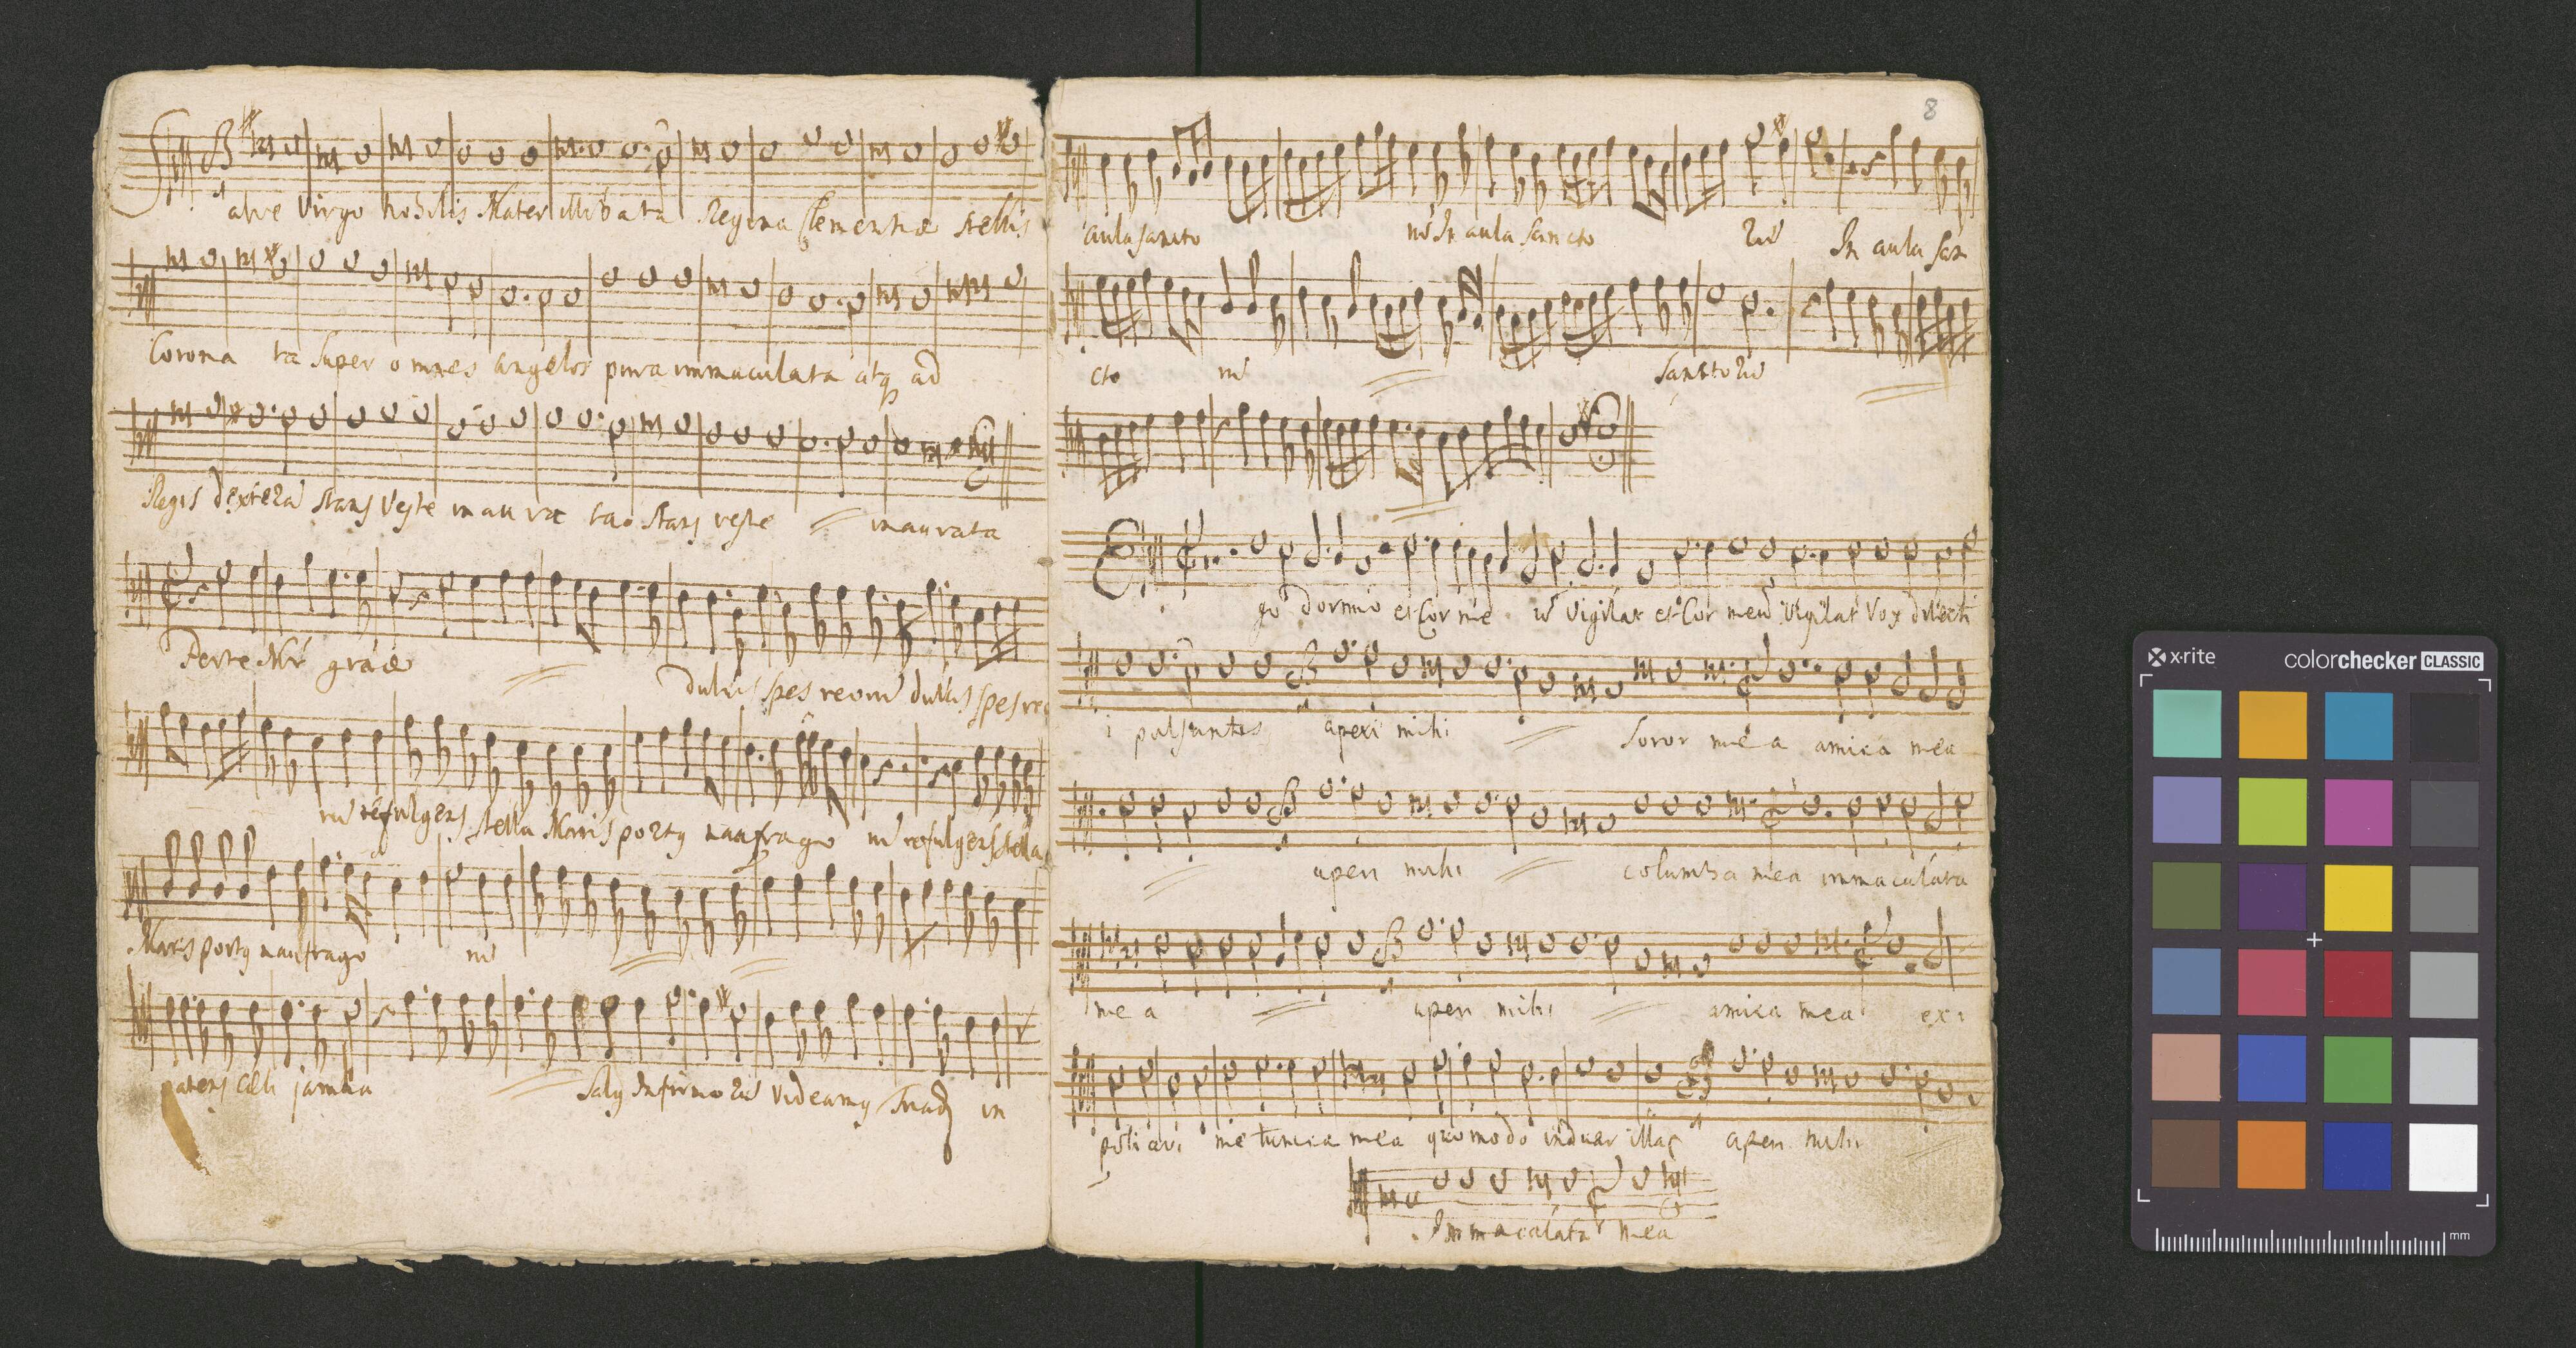 Salve Virgo nobilis Mater illibata Regina Clementiæ stellis
Corona ta super omnes angelos pura immaculata atq ad
Regis dexterā stans veste in au ra ta. stans veste in aurata
Per te Mr̄ gr̄aæ dulcis spes reorū dulcis spes reo
rū refulgens stella Maris portꝯ naufrago rū refulgens stella
Maris portꝯ naufrago rū
patens cæli janua salꝯ Infirmo rū videamꝯ in
8
aula sancto rū In aula sancto rū In aula san
cto rū sanctorū
Ego dormio et Cor me ū vigilat et Cor meū vigilat Vox dilecti
i pulsantis aperi mihi soror mea amica mea
aperi mihi columba mea immaculata
me a aperi mihi amica mea exs
poliavi me tunica mea quomodo induar illa aperi mihi
Immaculata mea
x·rite
colorchecker CLASSIC
mm